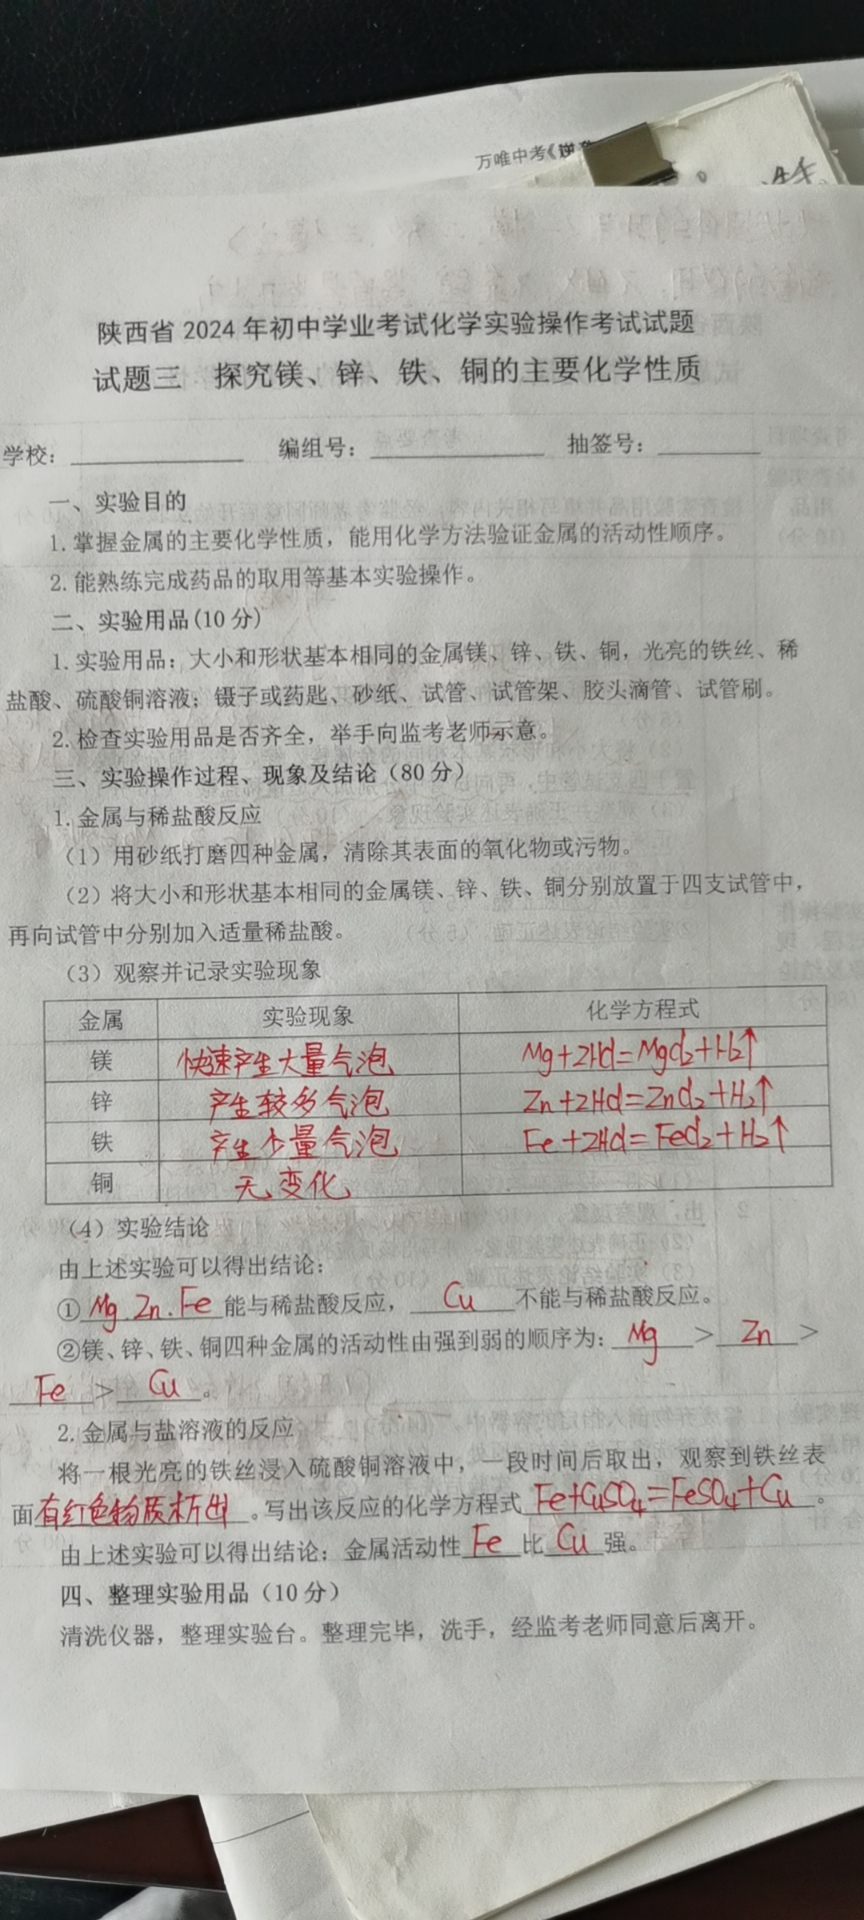 万唯中考
陕西省 2024 年初中学业考试化学实验操作考试试题
试题三 探究镁、锌、铁、铜的主要化学性质
学校：
编组号：
抽签号：
一、实验目的
1.掌握金属的主要化学性质，能用化学方法验证金属的活动性顺序。
2.能熟练完成药品的取用等基本实验操作。
二、实验用品(10 分)
1.实验用品：大小和形状基本相同的金属镁、锌、铁、铜，光亮的铁丝、稀
盐酸、硫酸铜溶液；镊子或药匙、砂纸、试管、试管架、胶头滴管、试管刷。
2.检查实验用品是否齐全，举手向监考老师示意。
三、实验操作过程、现象及结论（80 分）
1.金属与稀盐酸反应
（1）用砂纸打磨四种金属，清除其表面的氧化物或污物。
（2）将大小和形状基本相同的金属镁、锌、铁、铜分别放置于四支试管中，
再向试管中分别加入适量稀盐酸。
（3）观察并记录实验现象
金属 实验现象 化学方程式
镁 快速产生大量气泡 Mg+2HCl=MgCl₂+H₂↑
锌 产生较多气泡 Zn+2HCl=ZnCl₂+H₂↑
铁 产生少量气泡 Fe+2HCl=FeCl₂+H₂↑
铜 无变化
（4）实验结论
由上述实验可以得出结论：
①Mg.Zn.Fe能与稀盐酸反应，Cu不能与稀盐酸反应。
②镁、锌、铁、铜四种金属的活动性由强到弱的顺序为：Mg>Zn>
Fe>Cu。
2.金属与盐溶液的反应
将一根光亮的铁丝浸入硫酸铜溶液中，一段时间后取出，观察到铁丝表
面有红色物质析出。写出该反应的化学方程式Fe+CuSO₄=FeSO₄+Cu。
由上述实验可以得出结论：金属活动性Fe比Cu强。
四、整理实验用品（10 分）
清洗仪器，整理实验台。整理完毕，洗手，经监考老师同意后离开。